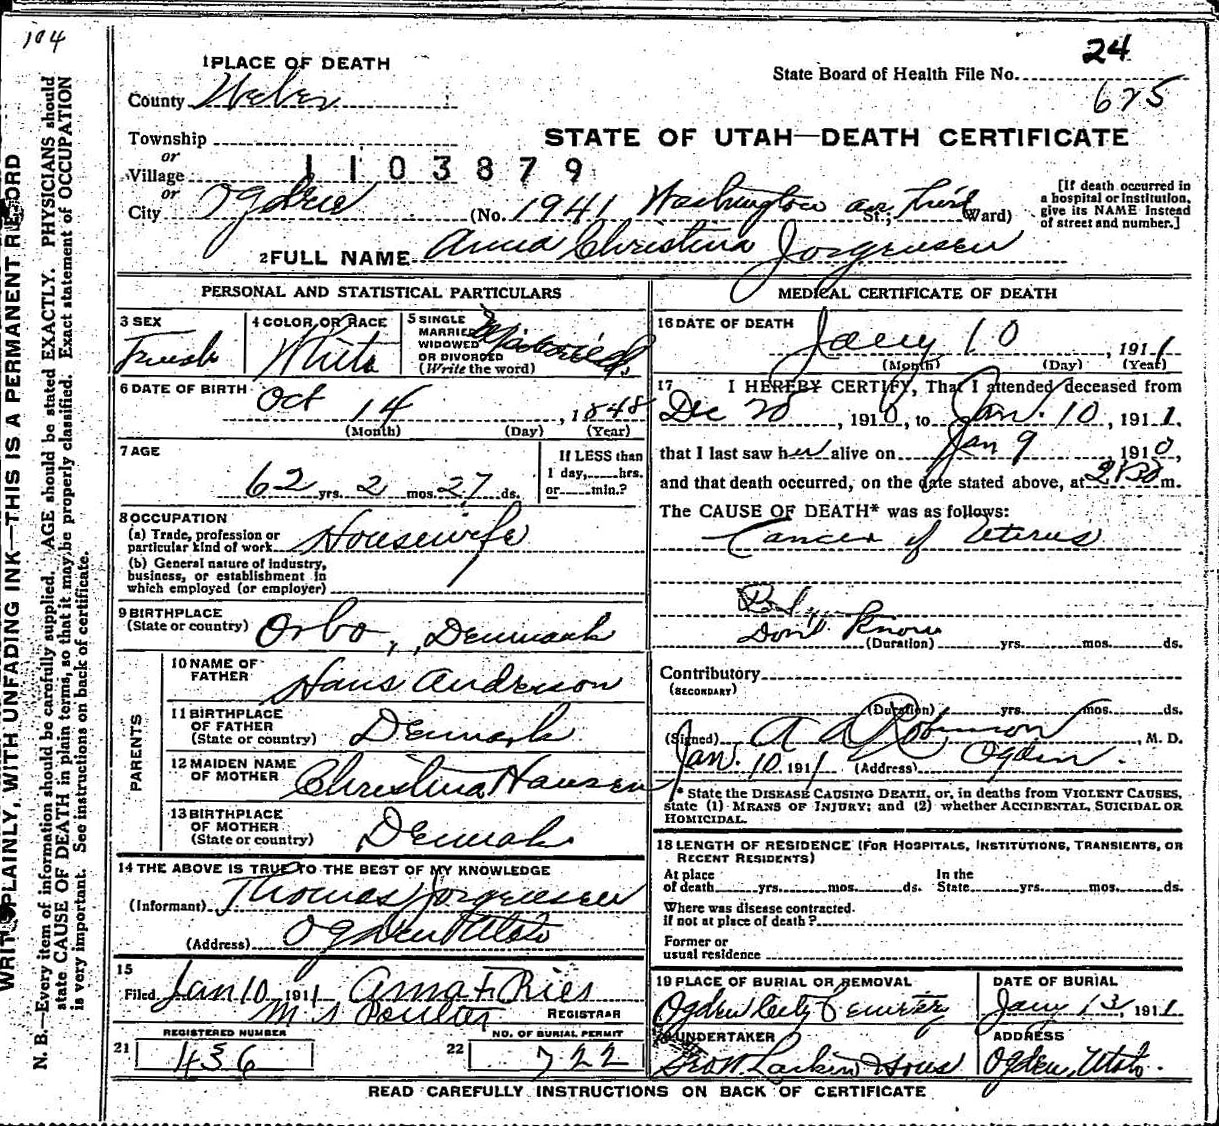 104
24
1 PLACE OF DEATH
State Board of Health File No.
625
County Weber
STATE OF UTAH—DEATH CERTIFICATE
Township
or
Village
1103879
or
City Ogden (No. 1941 Washington av St.; First Ward)
[If death occurred in
a hospital or institution,
give its NAME instead
of street and number.]
2 FULL NAME Anna Christina Jorgensen
PERSONAL AND STATISTICAL PARTICULARS
3 SEX
Female
4 COLOR OR RACE
White
5 SINGLE
MARRIED
WIDOWED
OR DIVORCED
(Write the word)
Widowed
6 DATE OF BIRTH
Oct 14, 1848
(Month) (Day) (Year)
7 AGE
62 yrs. 2 mos. 27 ds.
If LESS than
1 day, hrs.
or min.?
8 OCCUPATION
(a) Trade, profession or
particular kind of work Housewife
(b) General nature of industry,
business, or establishment in
which employed (or employer)
9 BIRTHPLACE
(State or country) Orbo, Denmark
PARENTS
10 NAME OF
FATHER Hans Anderson
11 BIRTHPLACE
OF FATHER
(State or country) Denmark
12 MAIDEN NAME
OF MOTHER Christina Hansen
13 BIRTHPLACE
OF MOTHER
(State or country) Denmark
14 THE ABOVE IS TRUE TO THE BEST OF MY KNOWLEDGE
(Informant) Thomas Jorgensen
(Address) Ogden Utah
15
Filed Jan 10 1911 Anna F Ries
M S Poulter REGISTRAR
REGISTERED NUMBER
21 436
NO. OF BURIAL PERMIT
22 722
MEDICAL CERTIFICATE OF DEATH
16 DATE OF DEATH
Jany 10, 1911
(Month) (Day) (Year)
17 I HEREBY CERTIFY, That I attended deceased from
Dec 20, 1910, to Jan. 10, 1911,
that I last saw her alive on Jan 9 1910,
and that death occurred, on the date stated above, at 2130 m.
The CAUSE OF DEATH* was as follows:
Cancer of Uterus
Don't Know
(Duration) yrs. mos. ds.
Contributory
(SECONDARY)
(Duration) yrs. mos. ds.
(Signed) A A Robinson, M. D.
Jan. 10. 1911 (Address) Ogden.
* State the DISEASE CAUSING DEATH, or, in deaths from VIOLENT CAUSES,
state (1) MEANS OF INJURY; and (2) whether ACCIDENTAL, SUICIDAL OR
HOMICIDAL.
18 LENGTH OF RESIDENCE (FOR HOSPITALS, INSTITUTIONS, TRANSIENTS, OR
RECENT RESIDENTS)
At place
of death yrs. mos. ds.
In the
State yrs. mos. ds.
Where was disease contracted.
if not at place of death?
Former or
usual residence
19 PLACE OF BURIAL OR REMOVAL
Ogden City Cemetery
DATE OF BURIAL
Jany 13, 1911
20 UNDERTAKER
Geo W Larkin & Sons
ADDRESS
Ogden, Utah.
READ CAREFULLY INSTRUCTIONS ON BACK OF CERTIFICATE
WRITE PLAINLY, WITH UNFADING INK—THIS IS A PERMANENT RECORD
N. B.—Every item of information should be carefully supplied. AGE should be stated EXACTLY. PHYSICIANS should
state CAUSE OF DEATH in plain terms, so that it may be properly classified. Exact statement of OCCUPATION
is very important. See instructions on back of certificate.